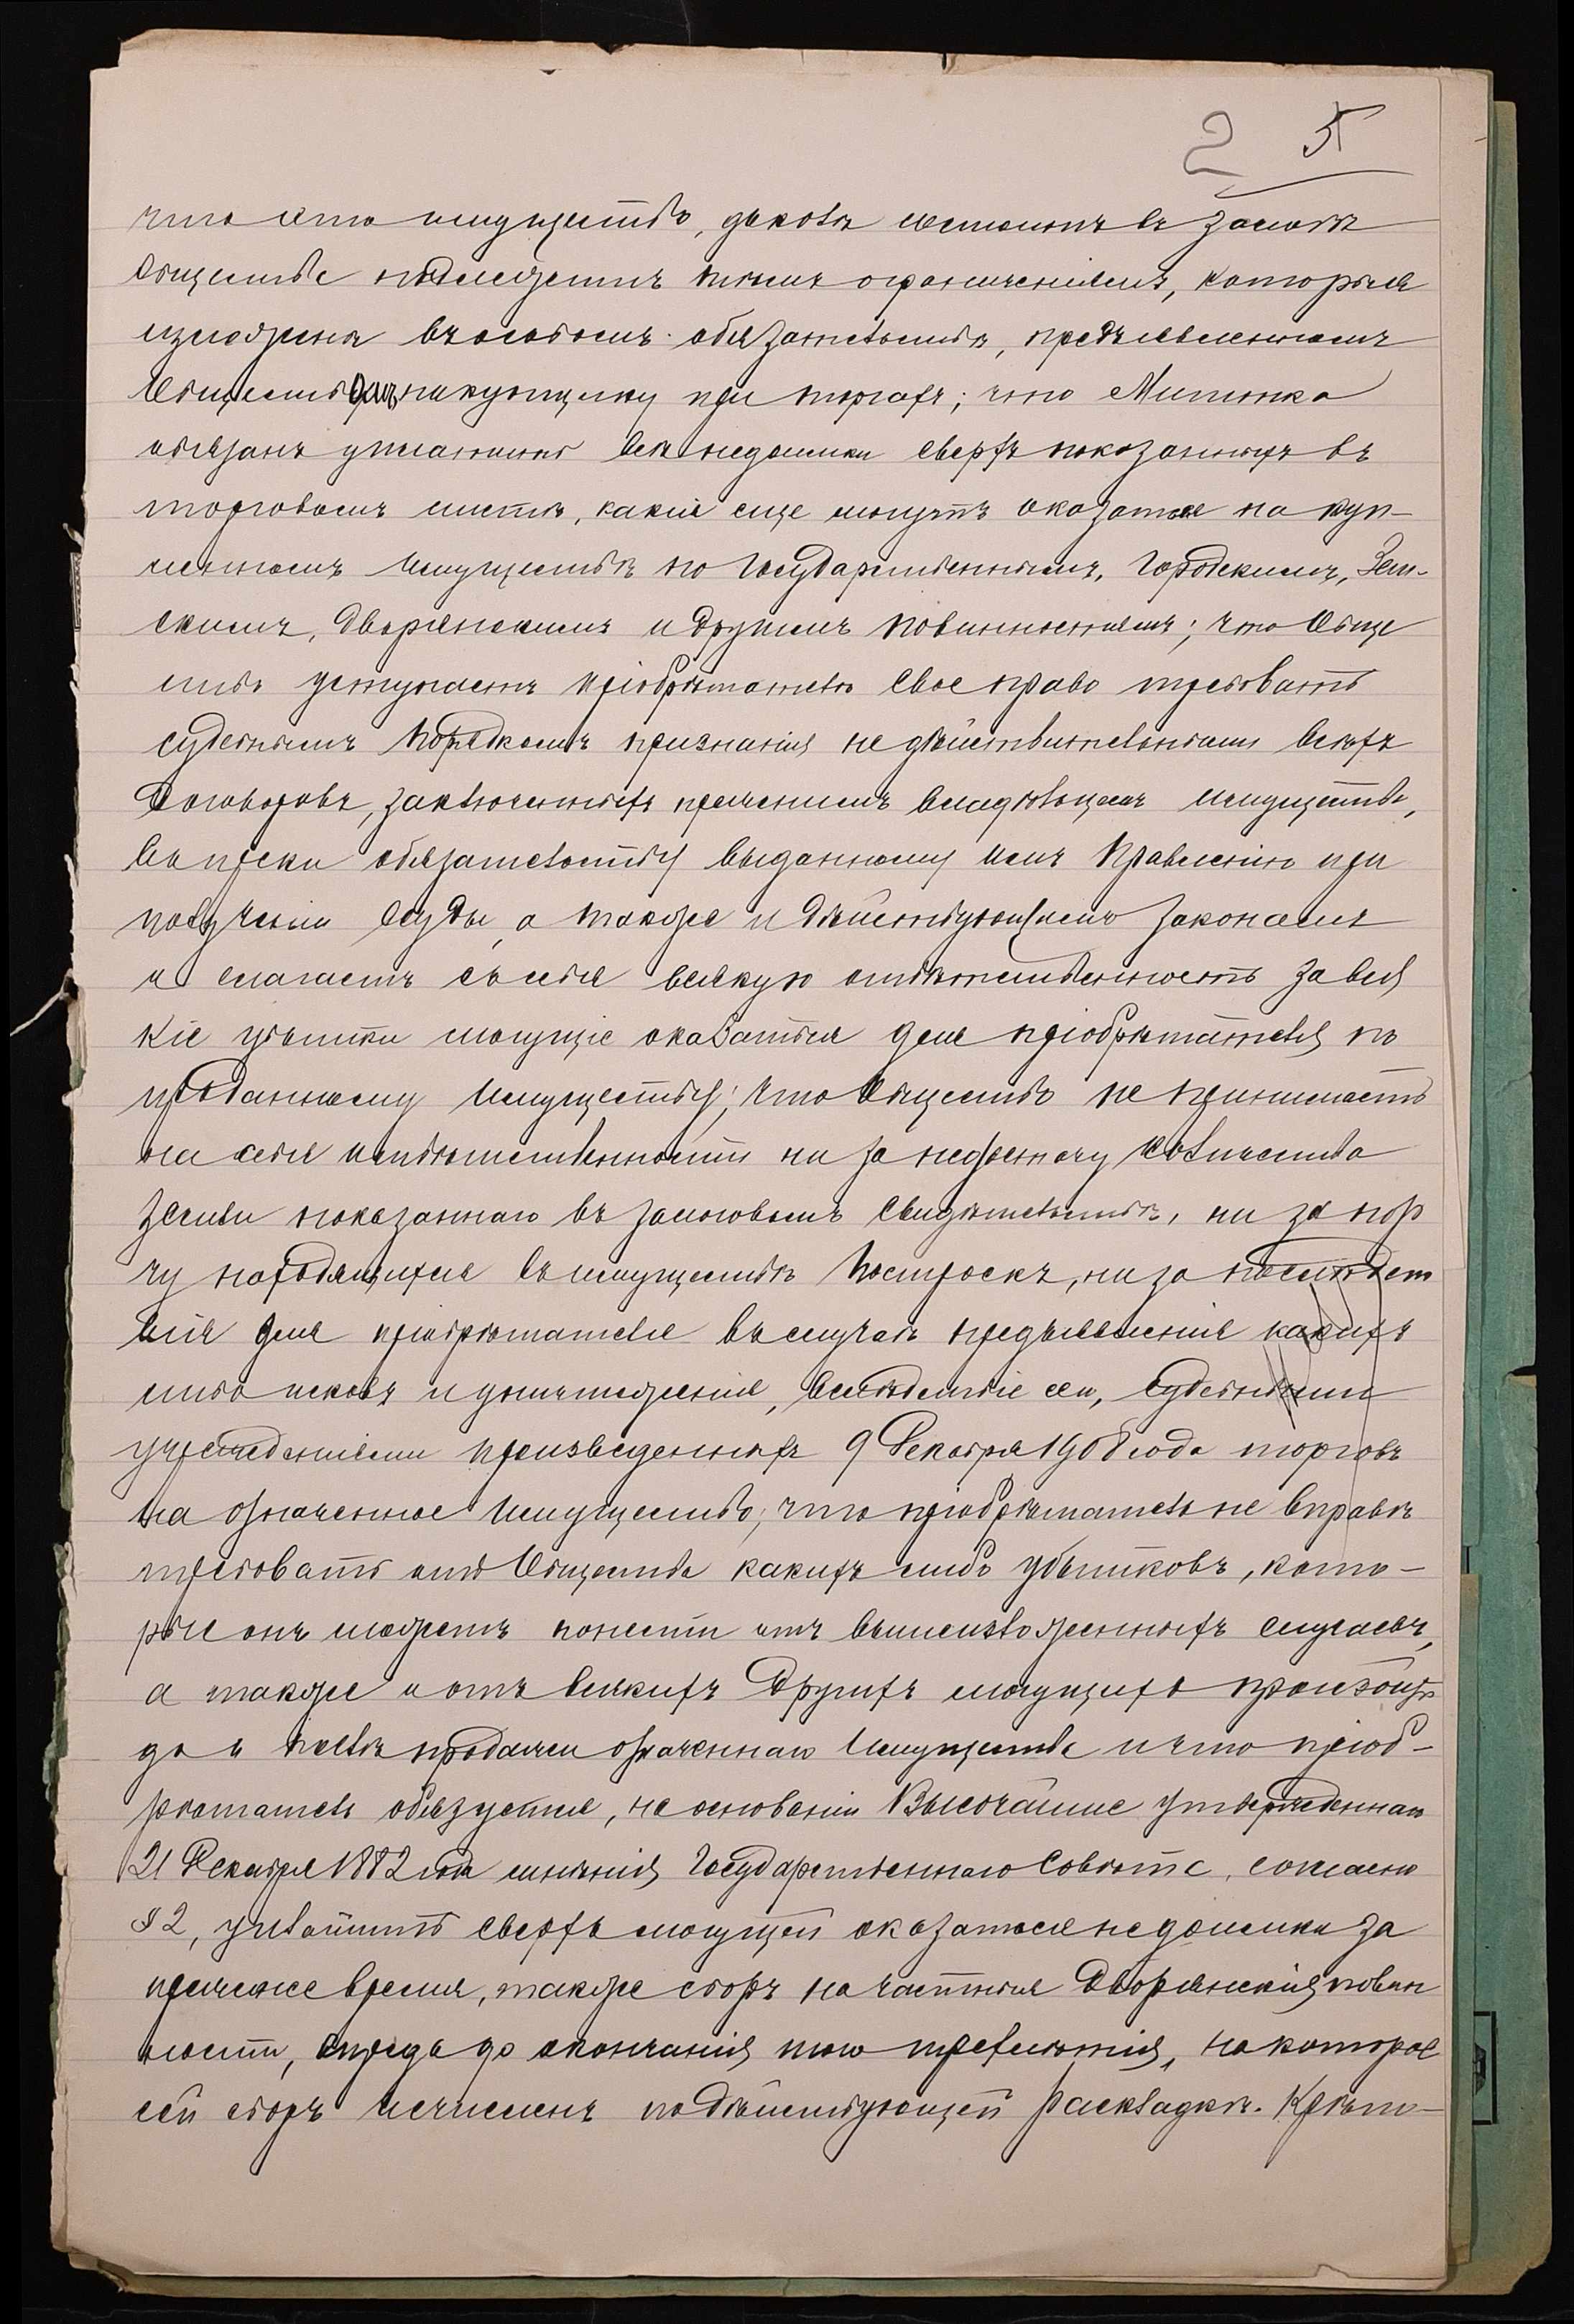 2 5
что это имущество, доколѣ состоитъ въ залогѣ
Общества подлежитъ тѣмъ ограниченіямъ, которыя
изложены въ особомъ обязательствѣ, предъявленномъ
Обществомъ покупщику при торгахъ; что Митюка
обязанъ уплатить всѣ недоимки сверхъ показанныхъ въ
торговомъ листѣ, какія еще могутъ оказаться на куп-
ленномъ имуществѣ по Государственнымъ, Городскимъ, Зем-
скимъ, Дворянскимъ и другимъ повинностямъ; что Обще
ство уступаетъ пріобрѣтателю свое право требовать
судебнымъ порядкомъ признанія недѣйствительными всѣхъ
договоровъ, заключенныхъ прежнимъ владѣльцемъ имущества,
вопреки обязательству выданному имъ Правленію при
полученіи ссуды, а также и дѣйствующимъ законамъ
и слагаетъ съ себя всякую отвѣтственность за вся
кіе убытки могущіе оказаться для пріобрѣтателя по
проданному имуществу; что Общество не принимаетъ
на себя отвѣтственности ни за недостачу количества
земли показаннаго въ залоговомъ свидѣтельствѣ, ни за пор
чу находящихся въ имуществѣ построекъ, ни за послѣдст
вія для пріобрѣтателя въ случаѣ предъявленія какихъ
либо исковъ и уничтоженія, вслѣдствіе сего, судебными
учрежденіями произведенныхъ 9 Декабря 1908 года торговъ
на означенное имущество; что пріобрѣтатель не вправѣ
требовать отъ Общества какихъ либо убытковъ, кото-
рые онъ можетъ понести отъ вышеизложенныхъ случаевъ,
а также и отъ всякихъ другихъ могущихъ произойти
до и послѣ продажи означеннаго имущества и что пріоб-
рѣтатель обязуется, на основаніи Высочайше утвержденнаго
21 Декабря 1882 года мнѣнія Государственнаго Совѣта, согласно
§ 2, уплатить сверхъ могущей оказаться недоимки за
прежнее время, также сборъ на частныя Дворянскія повин
ности, впредь до окончанія того трехлѣтія, на которое
сей сборъ исчисленъ по дѣйствующей раскладкѣ. Крѣпо-